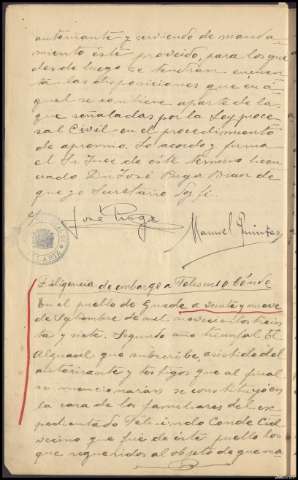 autorizante y sirviendo de manda
miento éste proveido, para los que
desde luego se tendrán en cuen
ta las disposiciones que en a
quel se contiene aparte de la
que señaladas por la Ley proce
sal Civil en el procedimiento
de apremio. Lo acordó y firma
el Sr. Juez de este termino licen
ciado Don José
de que yo Secretario
José
Manuel
Diligencia de embargo a Telesindo Conde
En el pueblo de a veinte y nueve
de Septiembre de mil novecientos trein
ta y siete. Segundo una tramital El
Alguacil que subscribe, asistido del
autorizante y testigos que al final
se mencionarán se constituyó en
la casa de los familiares del ex
pedientado Telesindo Conde Cid
vecino que fué de este pueblo los
que requeridos al objeto de que ma